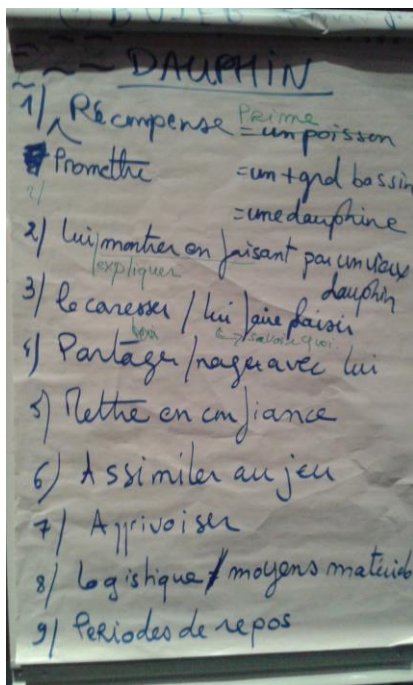 DAUPHIN
1) Récompense Prime = un poisson
Promettre = un + grd bassin
2/ = une dauphine
2) lui montrer en faisant par un vieux
expliquer dauphin
3) le caresser / lui faire plaisir
savoir quoi
4) Partager / nager avec lui
5) Mettre en confiance
6) Assimiler au jeu
7) Apprivoiser
8) logistique / moyens matériels
9) Périodes de repos